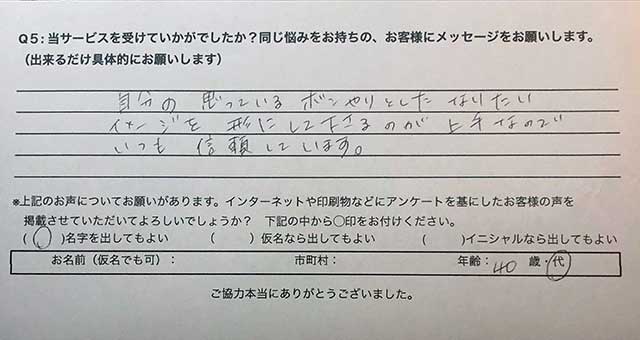 Q5:当サービスを受けていかがでしたか?同じ悩みをお持ちの、お客様にメッセージをお願いします。
(出来るだけ具体的にお願いします)
自分の思っているボンヤリとしたなりたい
イメージを形にして下さるのが上手なので
いつも信頼しています。
※上記のお声についてお願いがあります。インターネットや印刷物などにアンケートを基にしたお客様の声を
掲載させていただいてよろしいでしょうか? 下記の中から〇印をお付けください。
(〇)名字を出してもよい ( )仮名なら出してもよい ( )イニシャルなら出してもよい
お名前(仮名でも可): 市町村: 年齢:40 歳・代
ご協力本当にありがとうございました。